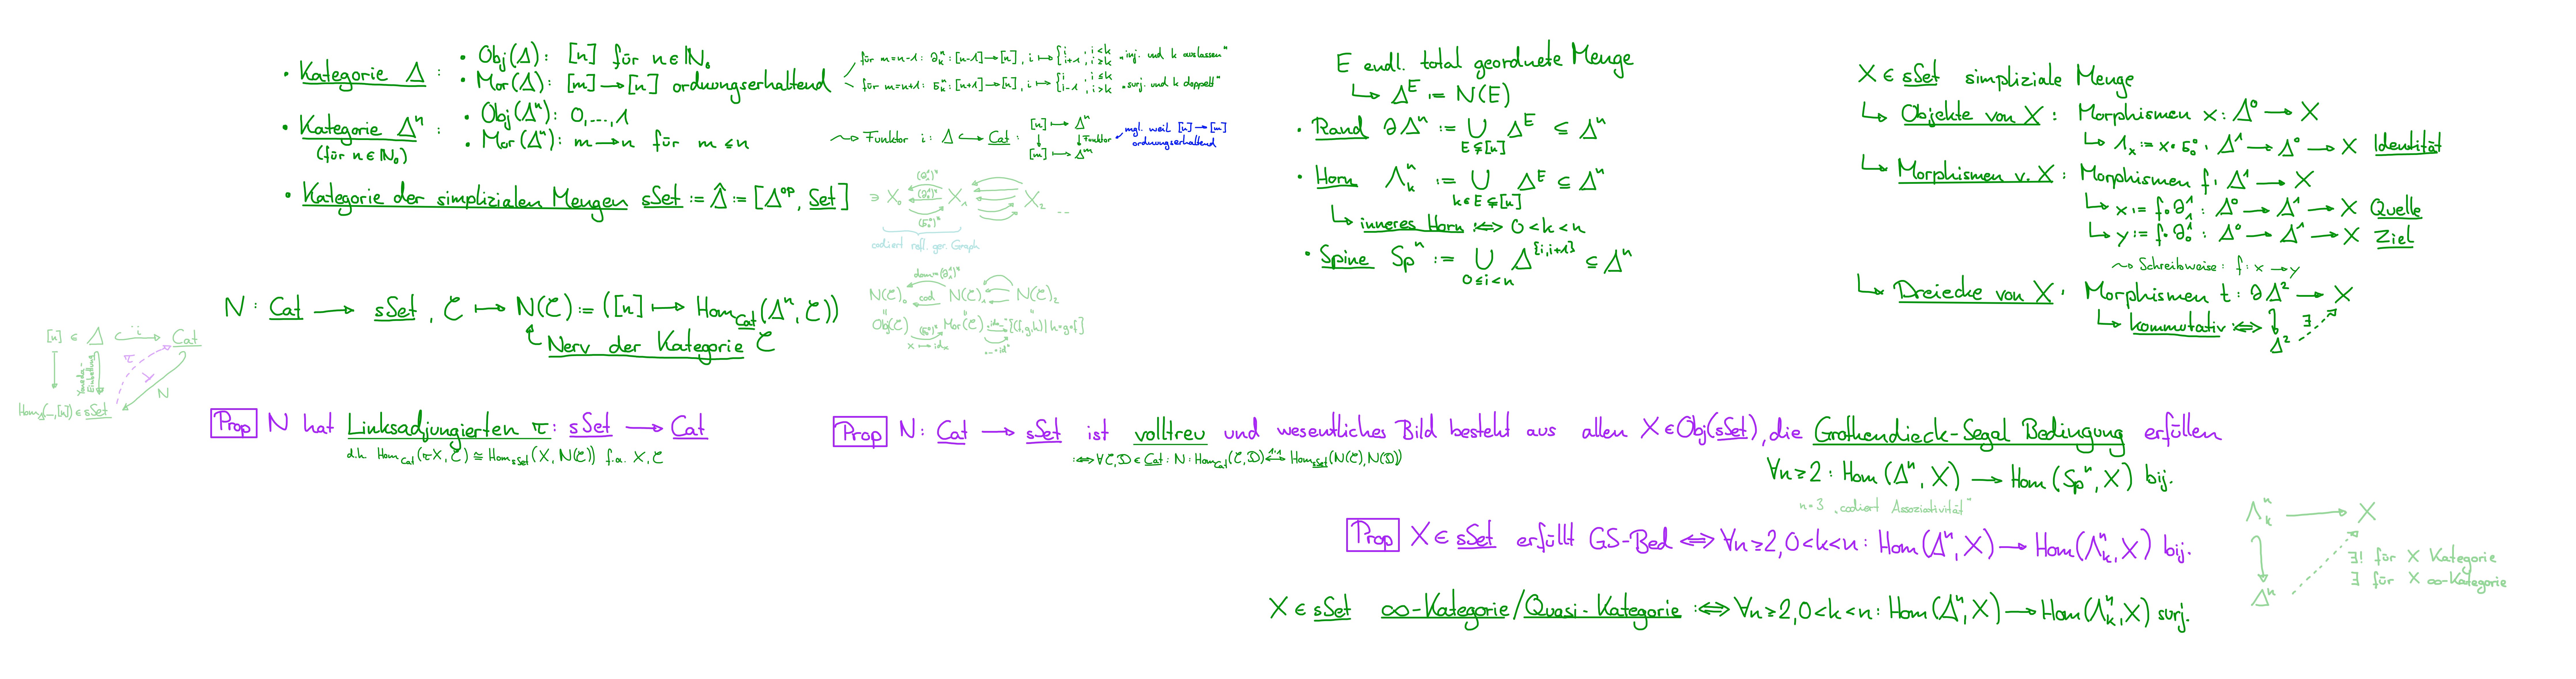 • Kategorie Δ :
• Obj(Δ): [n] für n∈ℕ₀
• Mor(Δ): [m]→[n] ordnungserhaltend
für m=n-1: ∂ₖⁿ: [n-1]→[n], i ↦ { i , i<k ; i+1, i≥k „inj. und k auslassen"
für m=n+1: σₖⁿ: [n+1]→[n], i ↦ { i , i≤k ; i-1, i>k „surj. und k doppelt"
• Kategorie Δⁿ :
(für n∈ℕ₀)
• Obj(Δⁿ): 0,...,1
• Mor(Δⁿ): m→n für m≤n
⇝ Funktor i: Δ ↪ Cat :
[n] ↦ Δⁿ
↓ ↓ Funktor
[m] ↦ Δᵐ
mgl. weil [n]→[m]
ordnungserhaltend
• Kategorie der simplizialen Mengen sSet := Δ̂ := [Δᵒᵖ, Set]
∋ X₀ X₁ X₂ ...
codiert refl. ger. Graph
N: Cat → sSet, C ↦ N(C) := ([n] ↦ Hom_Cat(Δⁿ, C))
Nerv der Kategorie C
N(C)₀ cod N(C)₁ N(C)₂
Obj(C) Mor(C) {(f,g,h)|h=g∘f}
x ↦ idₓ
[n] ∈ Δ ↪ i Cat
Yoneda-Einbettung
π
N
Hom_Δ(_,[n]) ∈ sSet
E endl. total geordnete Menge
↳ Δᴱ := N(E)
• Rand ∂Δⁿ := ⋃ Δᴱ ⊆ Δⁿ
E⊊[n]
• Horn Λₖⁿ := ⋃ Δᴱ ⊆ Δⁿ
k∈E⊊[n]
↳ inneres Horn :⇔ 0<k<n
• Spine Spⁿ := ⋃ Δ^{i,i+1} ⊆ Δⁿ
0≤i<n
X ∈ sSet simpliziale Menge
↳ Objekte von X : Morphismen x: Δ⁰ → X
↳ 1ₓ := x∘σ₀⁰ : Δ¹ → Δ⁰ → X Identität
↳ Morphismen v. X : Morphismen f: Δ¹ → X
↳ x := f∘∂₁¹ : Δ⁰ → Δ¹ → X Quelle
↳ y := f∘∂₀¹ : Δ⁰ → Δ¹ → X Ziel
⇝ Schreibweise: f: x → y
↳ Dreiecke von X : Morphismen t: ∂Δ² → X
↳ kommutativ :⇔ ∃
Δ²
Prop N hat Linksadjungierten π: sSet → Cat
d.h. Hom_Cat(πX, C) ≅ Hom_sSet(X, N(C)) f.a. X, C
Prop N: Cat → sSet ist volltreu und wesentliches Bild besteht aus allen X∈Obj(sSet), die Grothendieck-Segal Bedingung erfüllen
:⇔ ∀C,D ∈ Cat: N: Hom_Cat(C,D) ↔ 1:1 Hom_sSet(N(C),N(D))
∀n≥2: Hom(Δⁿ, X) → Hom(Spⁿ, X) bij.
n=3 „codiert Assoziativität"
Prop X ∈ sSet erfüllt GS-Bed ⇔ ∀n≥2, 0<k<n: Hom(Δⁿ, X) → Hom(Λₖⁿ, X) bij.
X ∈ sSet ∞-Kategorie/Quasi-Kategorie :⇔ ∀n≥2, 0<k<n: Hom(Δⁿ, X) → Hom(Λₖⁿ, X) surj.
Λₖⁿ → X
∃! für X Kategorie
∃ für X ∞-Kategorie
Δⁿ